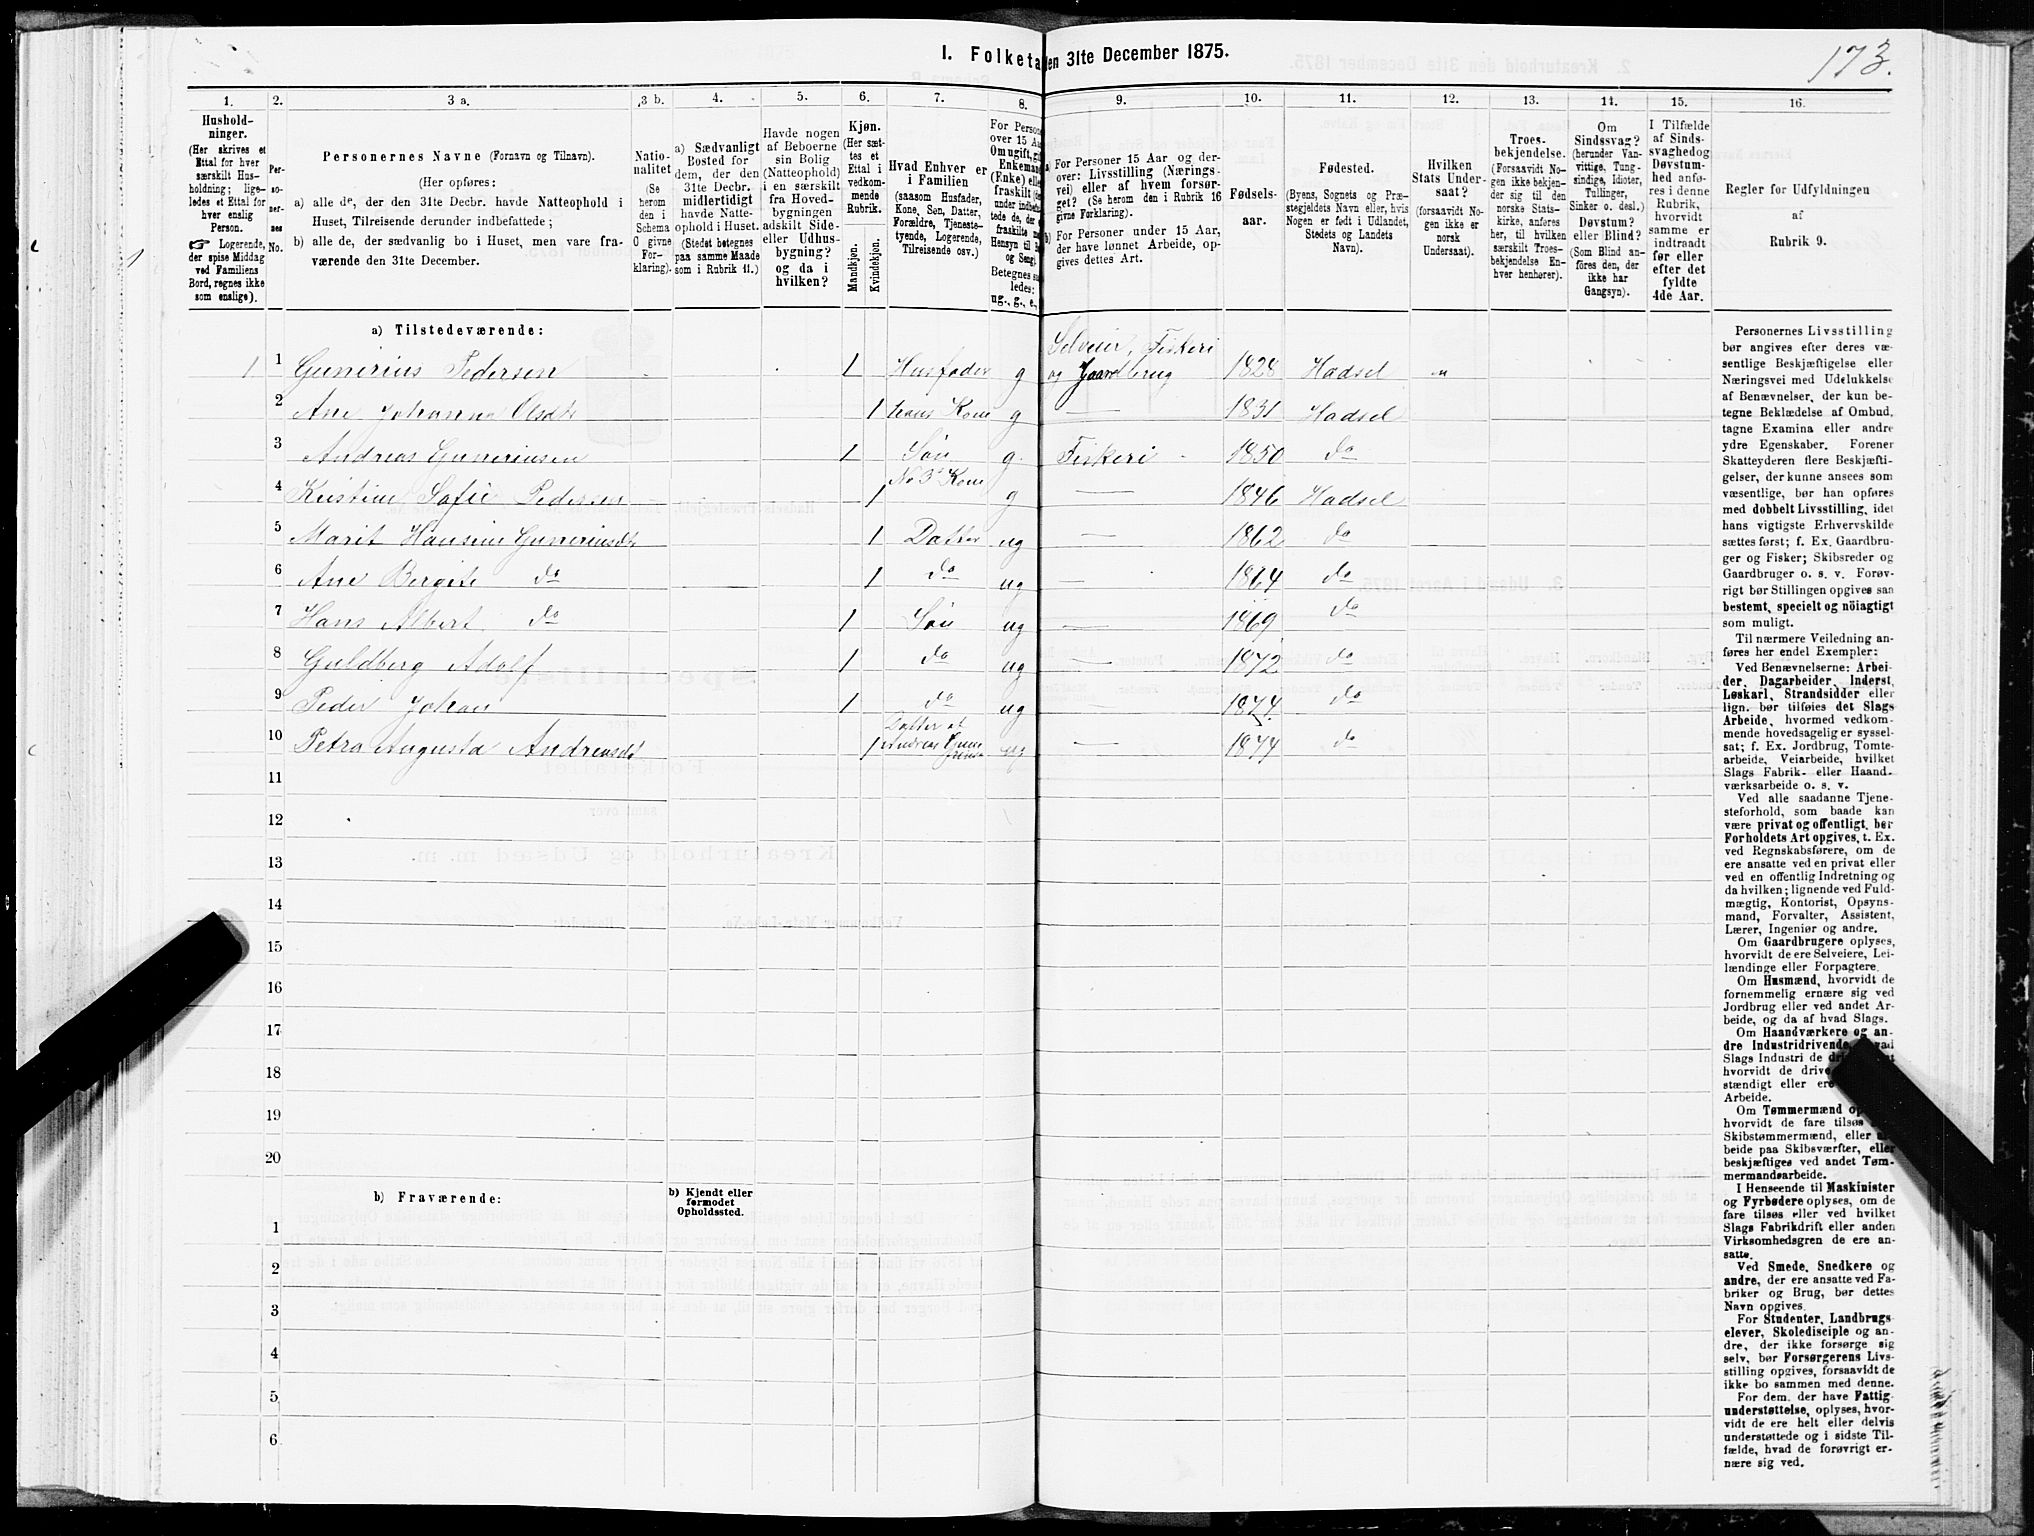 173.
I. Folketa len 31te December 1875.
1. 2. 3 a. 3 b. 4. 5. 6. 7. 8. 9. 10. 11. 12. 13. 14. 15. 16.
Hushold-
ninger.
(Her skrives et
Ettal for hver
særskilt Hus-
holdning; lige-
ledes et Ettal for
hver enslig
Person.
☞ Logerende,
der spise Middag
ved Familiens
Bord, regnes ikke
som enslige).
Per-
so-
ner-
nes
No.
Personernes Navne (Fornavn og Tilnavn).
(Her opføres:
a) alle de, der den 31te Decbr. havde Natteophold i
Huset, Tilreisende derunder indbefattede;
b) alle de, der sædvanlig bo i Huset, men vare fra-
værende den 31te December.
Natio-
nalitet
(Se
herom
den i
Schema
O givne
For-
klaring).
a) Sædvanligt
Bosted for
dem, der den
31te Decbr.
midlertidigt
havde Natte-
ophold i Huset.
(Stedet betegnes
paa samme Maade
som i Rubrik 11.)
Havde nogen
af Beboerne
sin Bolig
(Natteophold)
i en særskilt
fra Hoved-
bygningen
adskilt Side-
eller Udhus-
bygning?
og da i
hvilken?
Kjøn.
(Her sæt-
tes et
Ettal i
vedkom-
mende
Rubrik.
Mandkjøn.
Kvindekjøn.
Hvad Enhver er
i Familien
(saasom Husfader,
Kone, Søn, Datter,
Forældre, Tjeneste-
tyende, Logerende,
Tilreisende osv.)
For Person
over 15 Aar
Om ugift, gift
Enkemand
(Enke) eller
fraskilt
Betegnes saa-
ledes:
ug., g., e.,
a) For Personer 15 Aar og der-
over: Livsstilling (Nærings-
vei) eller af hvem forsør-
get? (Se herom den i Rubrik 16
givne Forklaring).
b) For Personer under 15 Aar,
der have lønnet Arbeide, op-
gives dettes Art.
Fødsels-
aar.
Fødested.
(Byens, Sognets og Præ-
stegjeldets Navn eller, hvis
Nogen er født i Udlandet,
Stedets og Landets
Navn).
Hvilken
Stats Under-
saat?
(forsaavidt No-
gen ikke er
norsk
Undersaat).
Troes-
bekjendelse.
(Forsaavidt No-
gen ikke bekjen-
der sig til den
norske Stats-
kirke, anføres
her, til hvilken
særskilt Troes-
bekjendelse En-
hver henhører).
Om
Sindssvag?
(herunder Van-
vittige, Tung-
sindige, Idioter,
Tullinger,
Sinker o. desl.)
Døvstum?
eller Blind?
(Som Blind an-
føres den, der
ikke har
Gangsyn).
I Tilfælde
af Sinds-
svaghed og
Døvstum-
hed anfø-
res i denne
Rubrik,
hvorvidt
samme er
indtraadt
før eller
efter det
fyldte
4de Aar.
Regler for Udfyldningen
af
Rubrik 9.
a) Tilstedeværende:
1 1 Gunerius Pedersen 1 Husfader g Selveier, Fiskeri og Gaardbrug 1828 Hadsel
2 Ane Johanna Olsdtr 1 hans Kone g — 1831 Hadsel
3 Andreas Guneriusen 1 Søn g. Fiskeri 1850 do
4 Kristine Sofie Pedersen 1 No 3s Kone g — 1846 Hadsel
5 Marit Hansine Guneriusdtr 1 Datter ug — 1862 do
6 Ane Bergite do 1 do ug — 1864 do
7 Hans Albert do 1 Søn ug — 1869 do
8 Guldberg Adolf 1 do ug — 1872 do
9 Peder Johan 1 do ug — 1874 do
10 Petra Augusta Andreasdt 1 Datter af Andreas ug — 1874 do
11
12
13
14
15
16
17
18
19
20
b) Fraværende:
b) Kjendt eller
formodet
Opholdssted.
1
2
3
4
5
6
Personernes Livsstilling
bør angives efter deres væ-
sentlige Beskjæftigelse eller
Næringsvei med Udelukkelse
af Benævnelser, der kun be-
tegne Beklædelse af Ombud,
tagne Examina eller andre
ydre Egenskaber. Forener
Skatteyderen flere Beskjæfti-
gelser, der kunne ansees som
væsentlige, bør han opføres
med dobbelt Livsstilling, idet
hans vigtigste Erhvervskilde
sættes først; f. Ex. Gaardbru-
ger og Fisker; Skibsreder og
Gaardbruger o. s. v. Forøv-
rigt bør Stillingen opgives saa
bestemt, specielt og nöiagtigt
som muligt.
Til nærmere Veiledning an-
føres her endel Exempler:
Ved Benævnelserne: Arbei-
der, Dagarbeider, Inderst,
Løskarl, Strandsidder eller
lign. bør tilføies det Slags
Arbeide, hvormed vedkom-
mende hovedsagelig er syssel-
sat; f. Ex. Jordbrug, Tomte-
arbeide, Veiarbeide, hvilket
Slags Fabrik- eller Haand-
værksarbeide o. s. v.
Ved alle saadanne Tjene-
steforhold, som baade kan
være privat og offentligt, bør
Forholdets Art opgives, t. Ex.
ved Regnskabsførere, om de
ere ansatte ved en privat eller
ved en offentlig Indretning og
da hvilken; lignende ved Fuld-
mægtig, Kontorist, Opsyns-
mand, Forvalter, Assistent,
Lærer, Ingeniør og andre.
Om Gaardbrugere oplyses,
hvorvidt de ere Selveiere, Lei-
lændinge eller Forpagtere.
Om Husmænd, hvorvidt de
fornemmelig ernære sig ved
Jordbrug eller ved andet Ar-
beide, og da af hvad Slags.
Om Haandværkere og an-
dre Industridrivende,
Slags Industri de
hvorvidt de drive
stændigt eller ere
Arbeide.
Om Tømmermænd
hvorvidt de fare tilsøs
Skibstømmermænd, eller
beide paa Skibsværfter, eller
beskjæftiges ved andet Tøm-
mermandsarbeide.
I Henseende til Maskinister
og Fyrbødere oplyses, om de
fare tilsøs eller ved hvilket
Slags Fabrikdrift eller anden
Virksomhedsgren de ere an-
satte.
Ved Smede, Snedkere og
andre, der ere ansatte ved Fa-
briker og Brug, bør dettes
Navn opgives.
For Studenter, Landbrugs-
elever, Skoledisciple og an-
dre, der ikke forsørge sig
selv, bør Forsørgerens Livs-
stilling opgives, forsaavidt de
ikke bo sammen med denne.
For dem, der have Fattig-
understøttelse, oplyses, hvor-
vidt de ere helt eller delvis
understøttede og i sidste Til-
fælde, hvad de forøvrigt er-
nære sig ved.